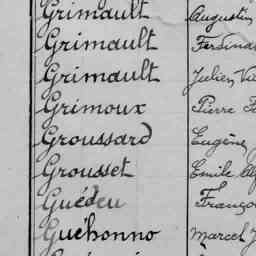 Grimault Augustin
Grimault Ferdina
Grimault Julien Vi
Grimoux Pierre
Groussard Eugène
Grousset Emile
Guédeu Franço
Guéhonno Marcel J